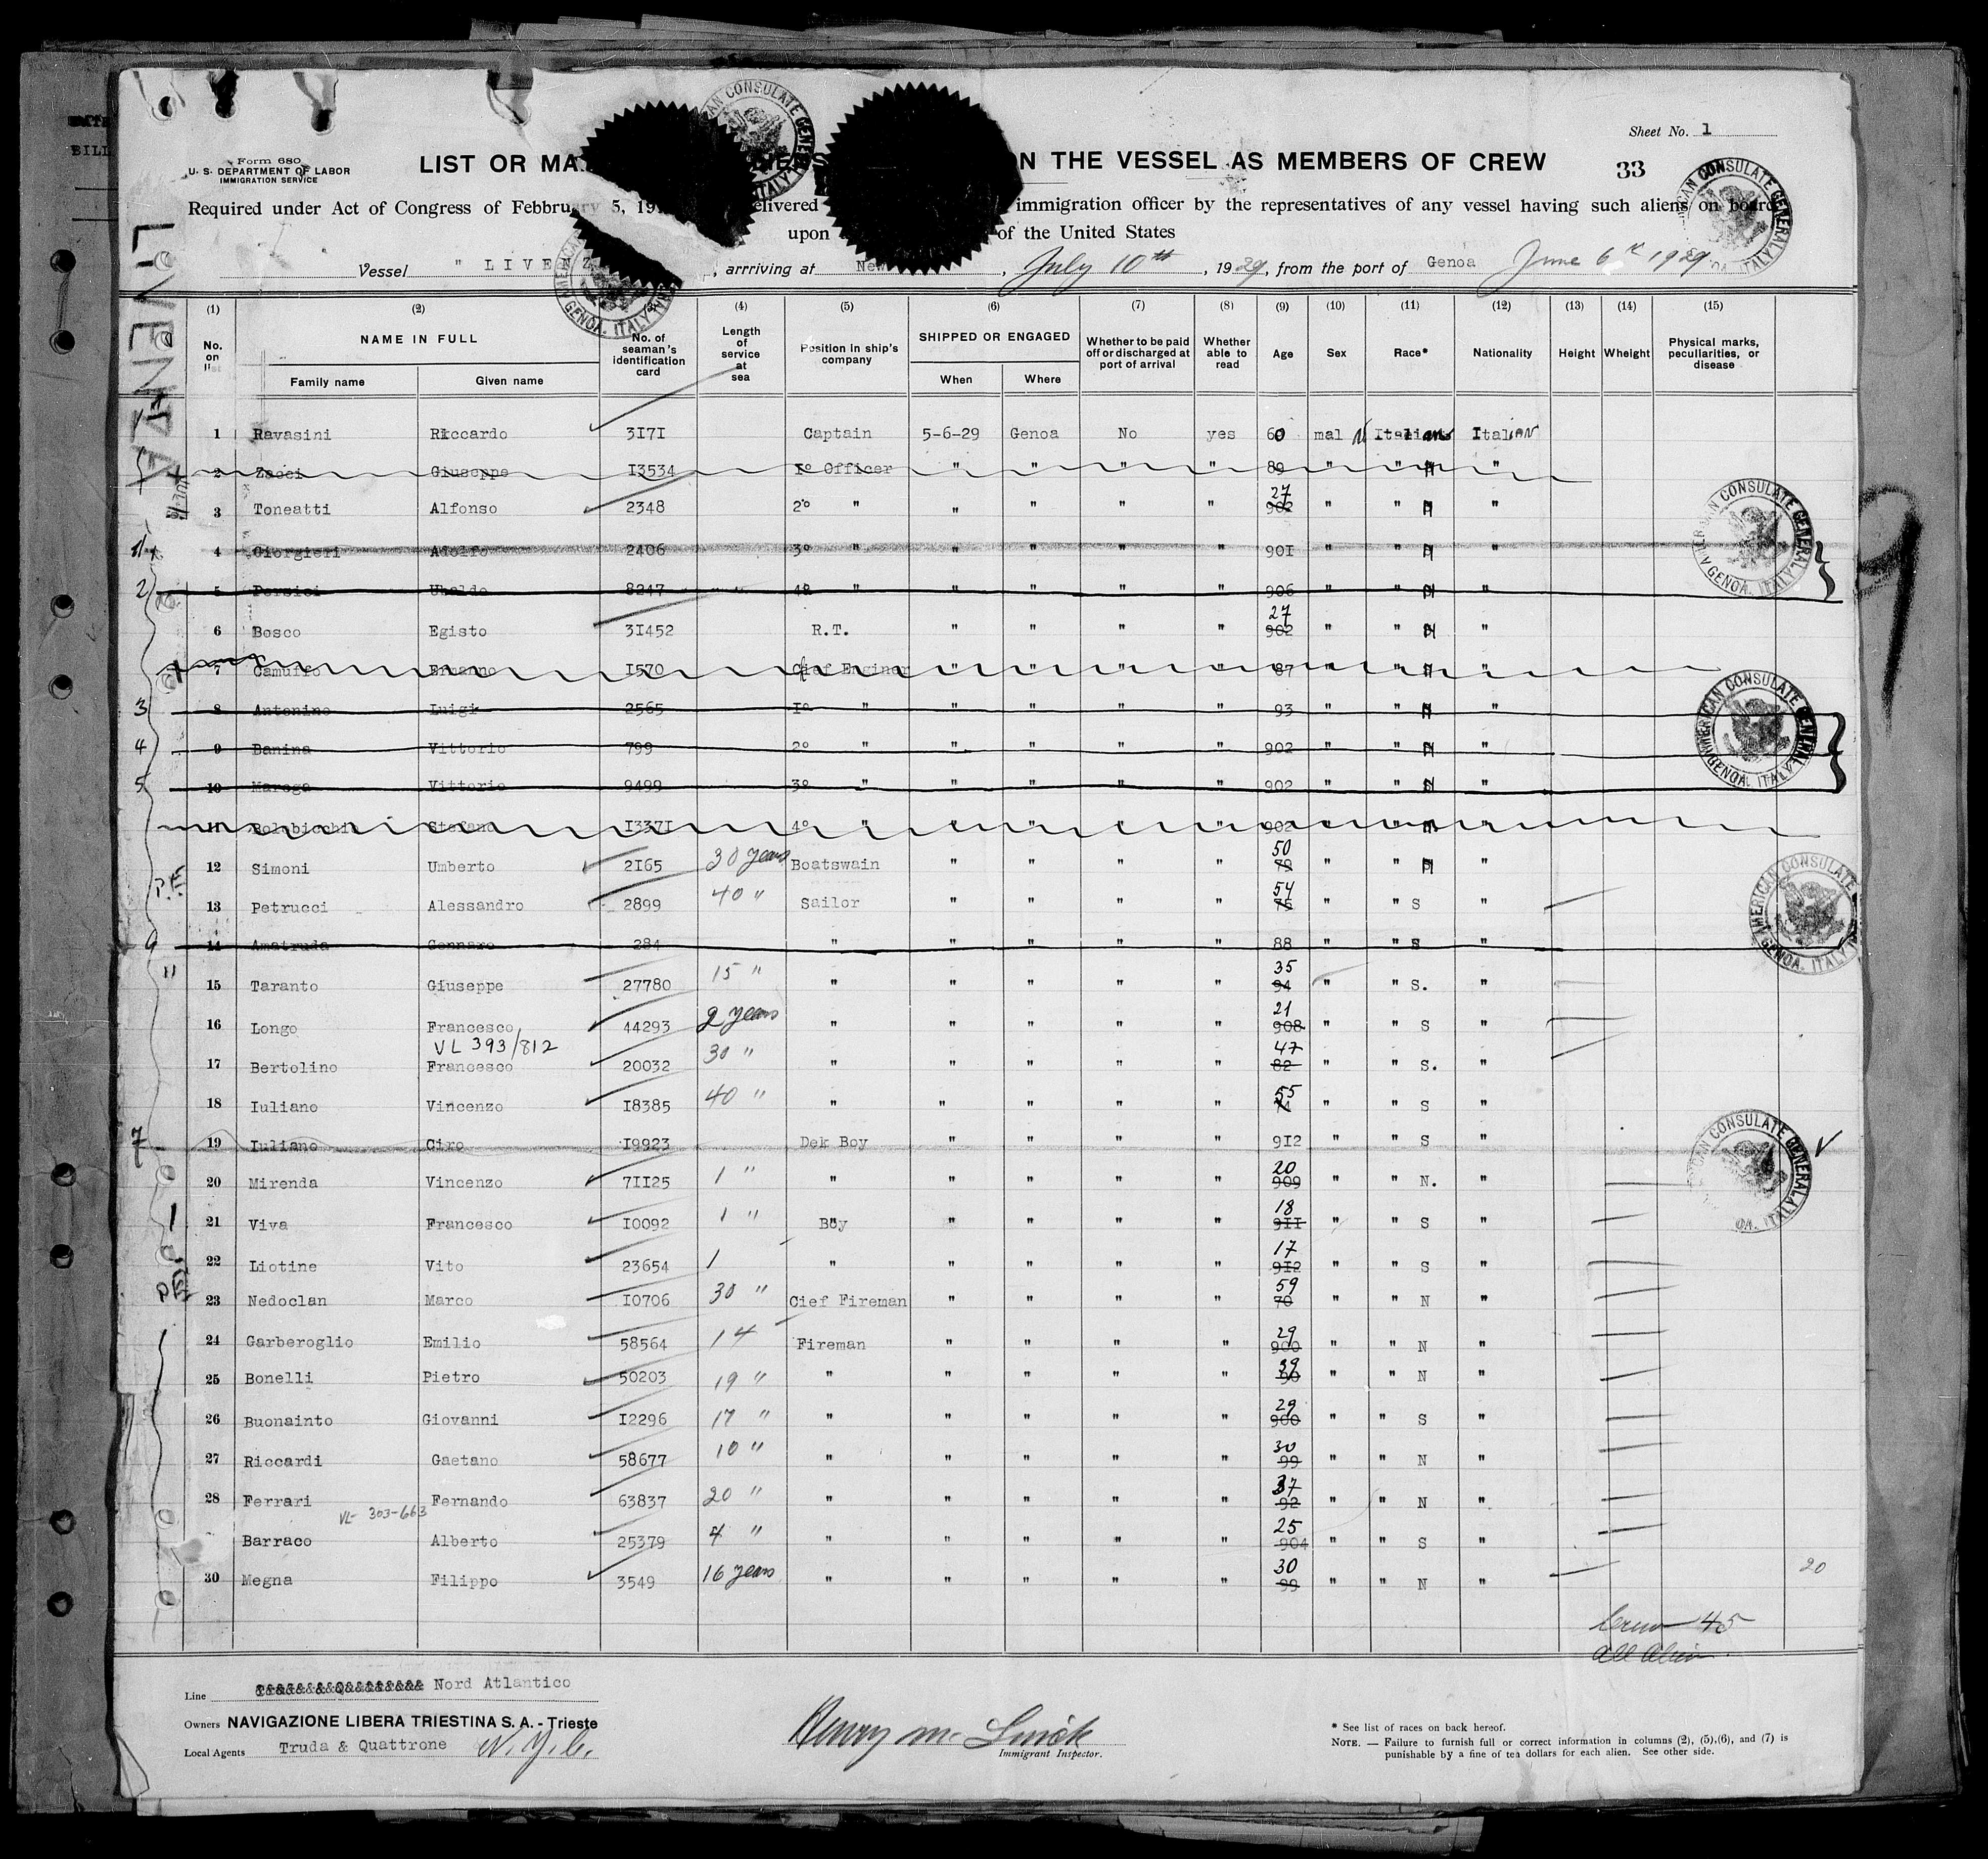 Sheet No. 1
Form 680
U. S. DEPARTMENT OF LABOR
IMMIGRATION SERVICE
LIST OR ON THE VESSEL AS MEMBERS OF CREW
33
Required under Act of Congress of Febbruary 5, immigration officer by the representatives of any vessel having such aliens on board
upon of the United States
Vessel " LIVENZ , arrriving at New , July 10th , 1929, from the port of Genoa June 6th 1929
LIVENZA
(1) (2) (4) (5) (6) (7) (8) (9) (10) (11) (12) (13) (14) (15)
No. on list NAME IN FULL Family name Given name No. of seaman's identification card Length of service at sea Position in ship's company SHIPPED OR ENGAGED When Where Whether to be paid off or discharged at port of arrival Whether able to read Age Sex Race* Nationality Height Wheight Physical marks, peculiarities, or disease
1 Ravasini Riccardo 3171 Captain 5-6-29 Genoa No yes 60 mal N Italian Italian
2 Zacci Giuseppe 13534 1° Officer " " " " 89 " " "
3 Toneatti Alfonso 2348 2° " " " " " 27 902 " " N "
1 4 Giorgieri Adolfo 2406 3° " " " " " 901 " " N "
2 5 Persici Ubaldo 8247 4° " " " " " 906 " " N "
6 Bosco Egisto 31452 R.T. " " " " 27 902 " " N "
7 Camuffo Ermanno 1570 Chief Enginer " " " " 87 " " "
3 8 Antonino Luigi 2565 1° " " " " " 93 " " N "
4 9 Banina Vittorio 799 2° " " " " " 902 " " N "
5 10 Marega Vittorio 9499 3° " " " " " 902 " " N "
11 Stefano 13371 4° " " " " " 902 " " "
12 Simoni Umberto 2165 30 years Boatswain " " " " 50 79 " " N "
13 Petrucci Alessandro 2899 40 " Sailor " " " " 54 75 " " S "
14 Amatruda Gennaro 284 " " " " " 88 " " S "
15 Taranto Giuseppe 27780 15 " " " " " " 35 94 " " S. "
16 Longo Francesco 44293 2 years " " " " " 21 908 " " S "
VL 393/812
17 Bertolino Francesco 20032 30 " " " " " " 47 82 " " S. "
18 Iuliano Vincenzo 18385 40 " " " " " " 55 " " S "
7 19 Iuliano Ciro 19923 Dek Boy " " " " 912 " " S "
20 Mirenda Vincenzo 71125 1 " " " " " " 20 909 " " N. "
21 Viva Francesco 10092 1 " Boy " " " " 18 911 " " S "
22 Liotine Vito 23654 1 " " " " " 17 912 " " S "
23 Nedoclan Marco 10706 30 " Cief Fireman " " " " 59 70 " " N "
24 Garberoglio Emilio 58564 14 Fireman " " " " 29 900 " " N "
25 Bonelli Pietro 50203 19 " " " " " " 39 90 " " N "
26 Buonainto Giovanni 12296 17 " " " " " " 29 900 " " S "
27 Riccardi Gaetano 58677 10 " " " " " " 30 99 " " N "
28 Ferrari Fernando 63837 20 " " " " " " 37 92 " " N "
VL- 303-663
Barraco Alberto 25379 4 " " " " " " 25 904 " " S "
30 Megna Filippo 3549 16 years " " " " " 30 99 " " N "
20
Crew 45
all alien
Line Nord Atlantico
Owners NAVIGAZIONE LIBERA TRIESTINA S. A. - Trieste
Local Agents Truda & Quattrone N.Y.C.
Immigrant Inspector.
* See list of races on back hereof.
NOTE. — Failure to furnish full or correct information in columns (2), (5),(6), and (7) is
punishable by a fine of ten dollars for each alien. See other side.
AMERICAN CONSULATE GENERAL GENOA, ITALY